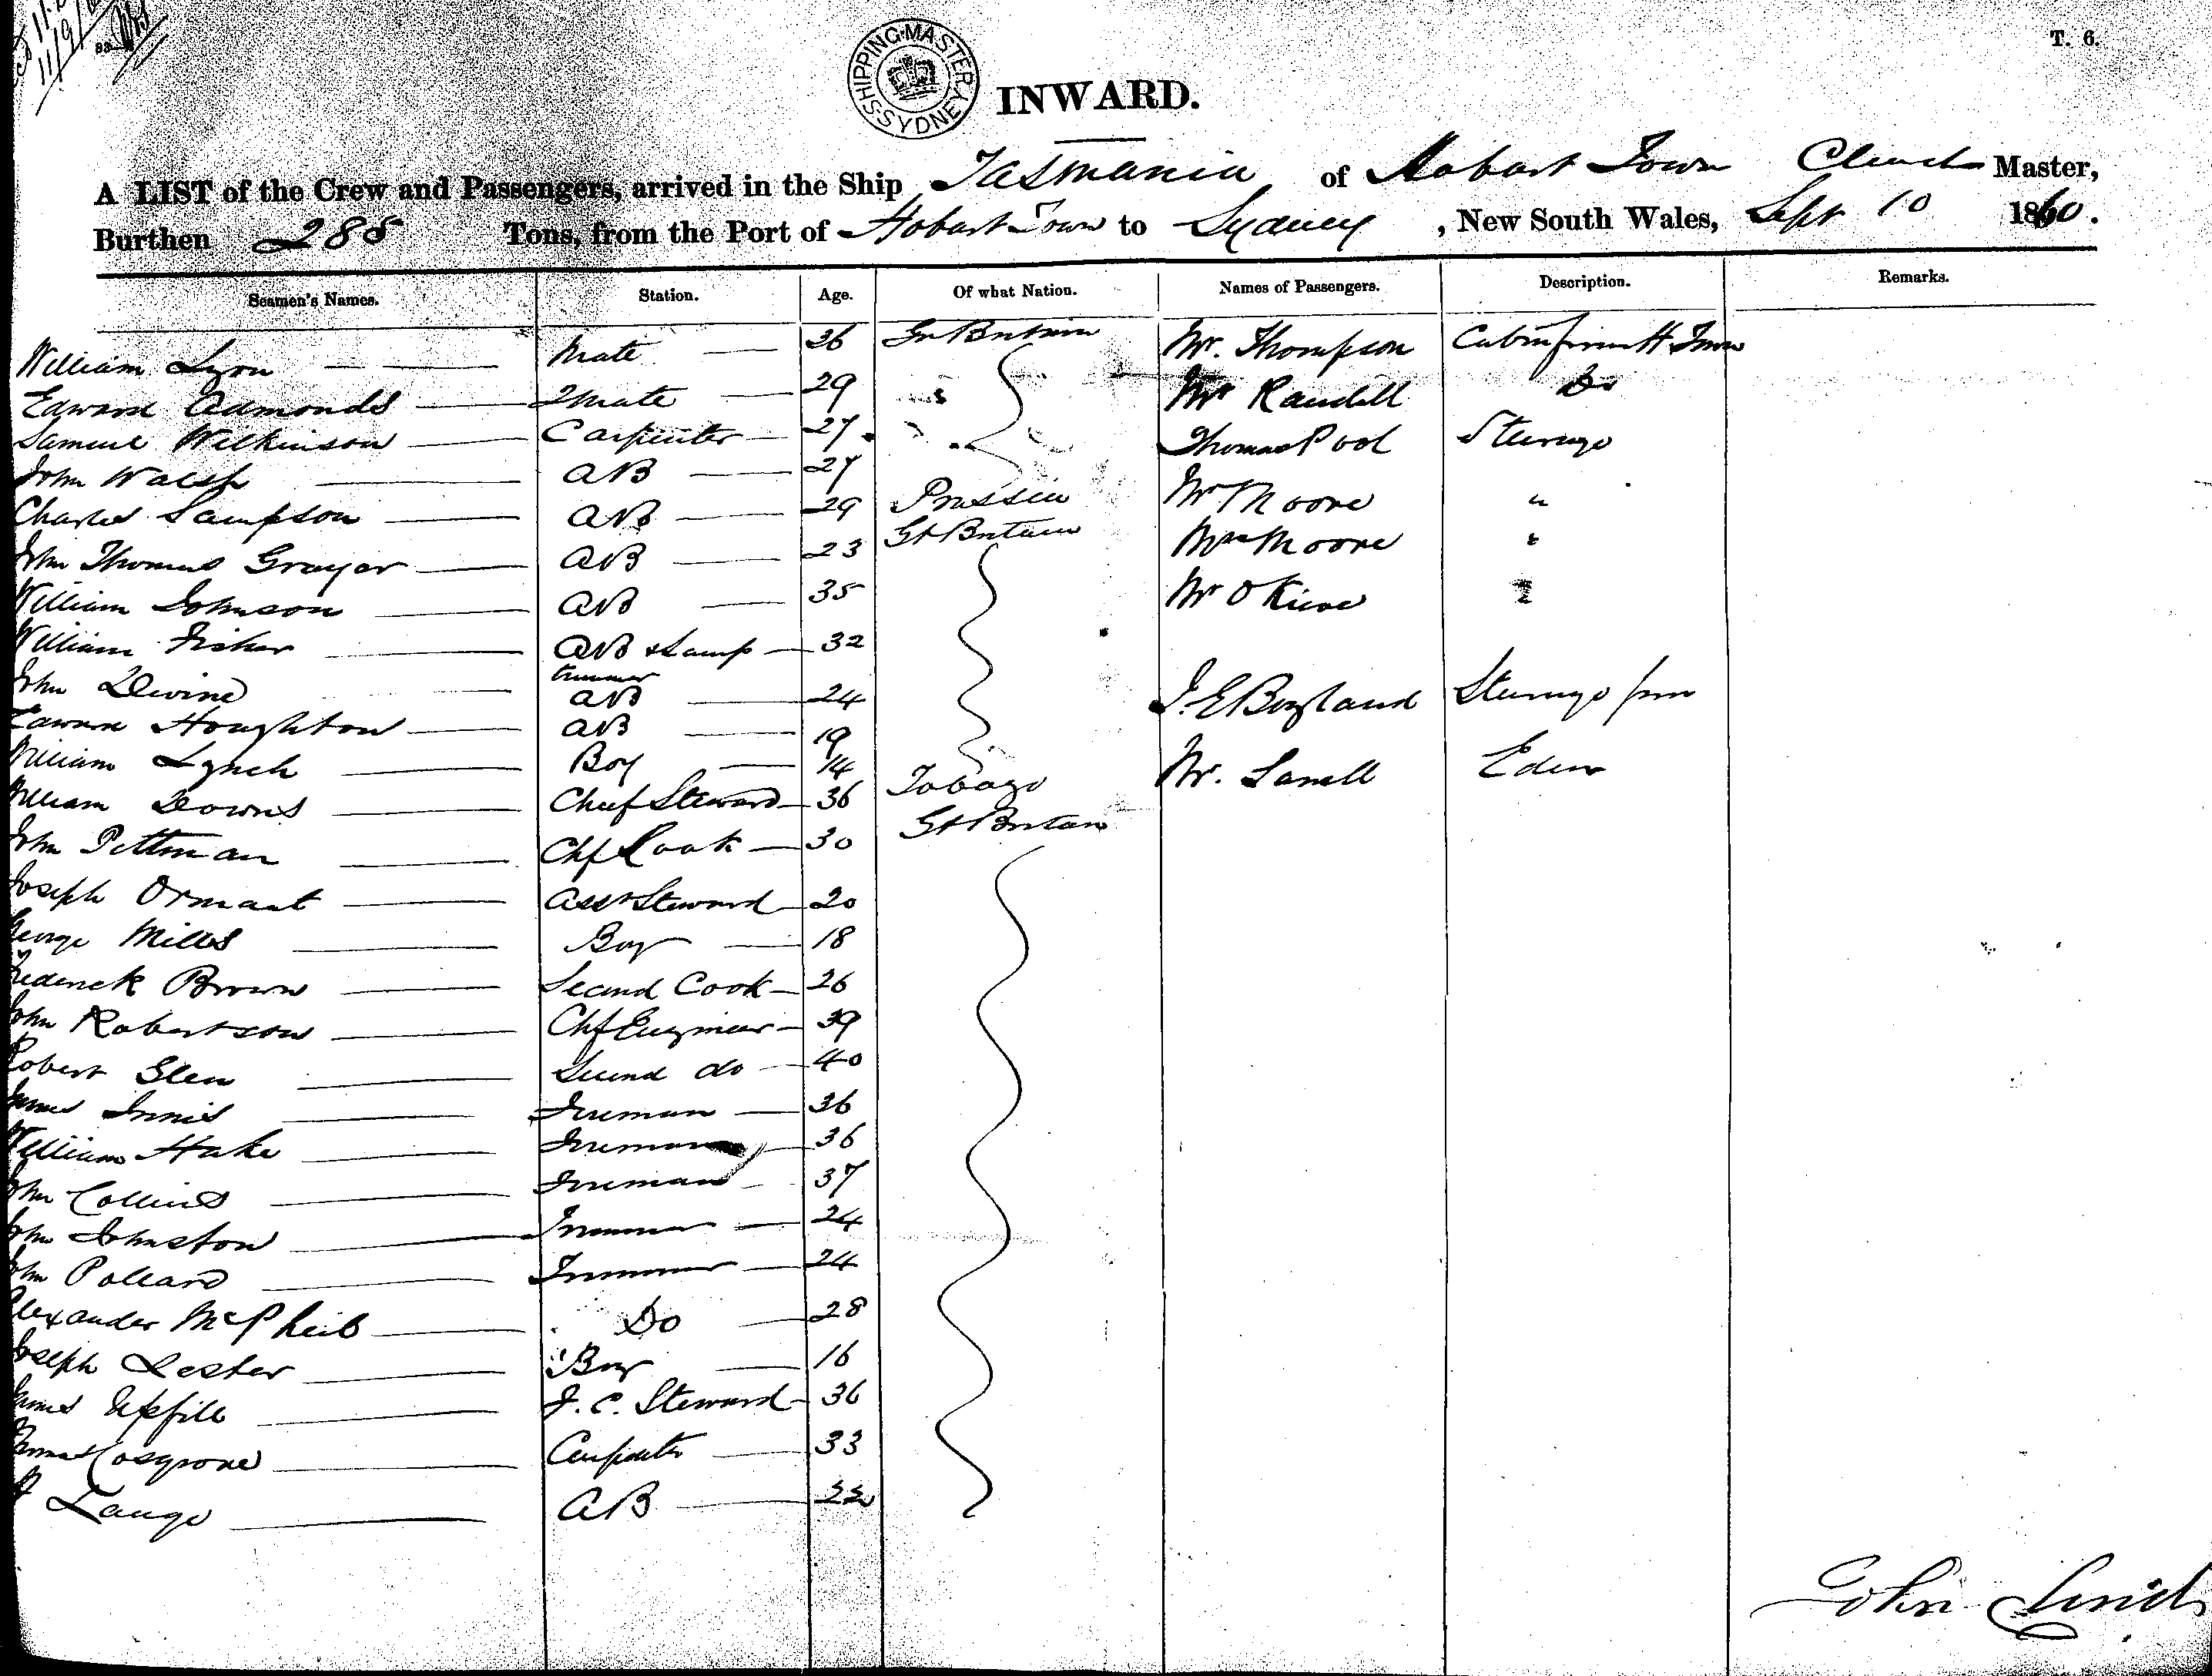 T. 6.
SHIPPING MASTER SYDNEY
INWARD.
A LIST of the Crew and Passengers, arrived in the Ship Tasmania of Hobart Town Clinch Master,
Burthen 285 Tons, from the Port of Hobart Town to Sydney, New South Wales, Sept 10 1860.
Seamen's Names. Station. Age. Of what Nation. Names of Passengers. Description. Remarks.
William Lyon Mate 36 Gr Britain Mr. Thompson Cabin from H. Town
Edward Admonds 2 Mate 29 Mr Randell Do
Samuel Wilkinson Carpenter 27 Thomas Pool Steerage
John Walsh AB 27
Charles Sampson AB 29 Prussia Mr Moore "
John Thomas Grayer AB 23 Gt Britain Mrs Moore "
William Johnson AB 35 Mr O Kieve
William Fisher AB & Lamp trimmer 32
John Devine AB 24 J. E Boyland Steerage from
Edward Houghton AB 19
William Lynch Boy 14 Mr. Lanell Eden
William Downs Chief Steward 36 Tobago
John Pittman Chf Cook 30 Gt Britain
Joseph Ormant Asst Steward 20
George Mills Boy 18
Frederick Brown Second Cook 26
John Robertson Chf Engineer 39
Robert Glen Second do 40
James Innis Fireman 36
William Hake Fireman 36
John Collins Fireman 37
John Johnston Trimmer 24
John Pollard Trimmer 24
Alexander McPheib Do 28
Joseph Lester Boy 16
James Upfill F. C. Steward 36
Thomas Cosgrove Carpenter 33
Lange AB 22
John Clinch